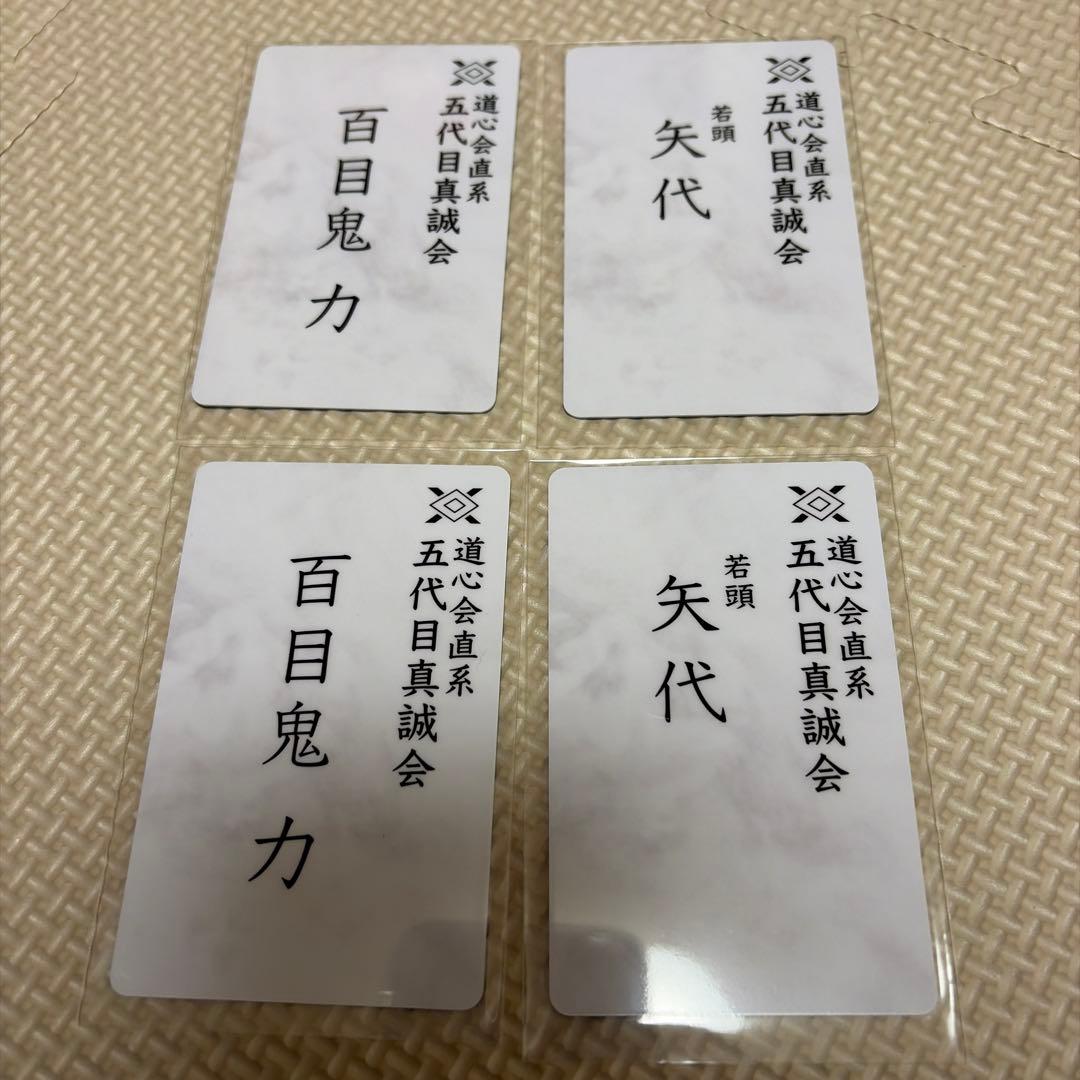 道心会直系
五代目真誠会
百目鬼 力
道心会直系
五代目真誠会
若頭
矢代
道心会直系
五代目真誠会
百目鬼 力
道心会直系
五代目真誠会
若頭
矢代